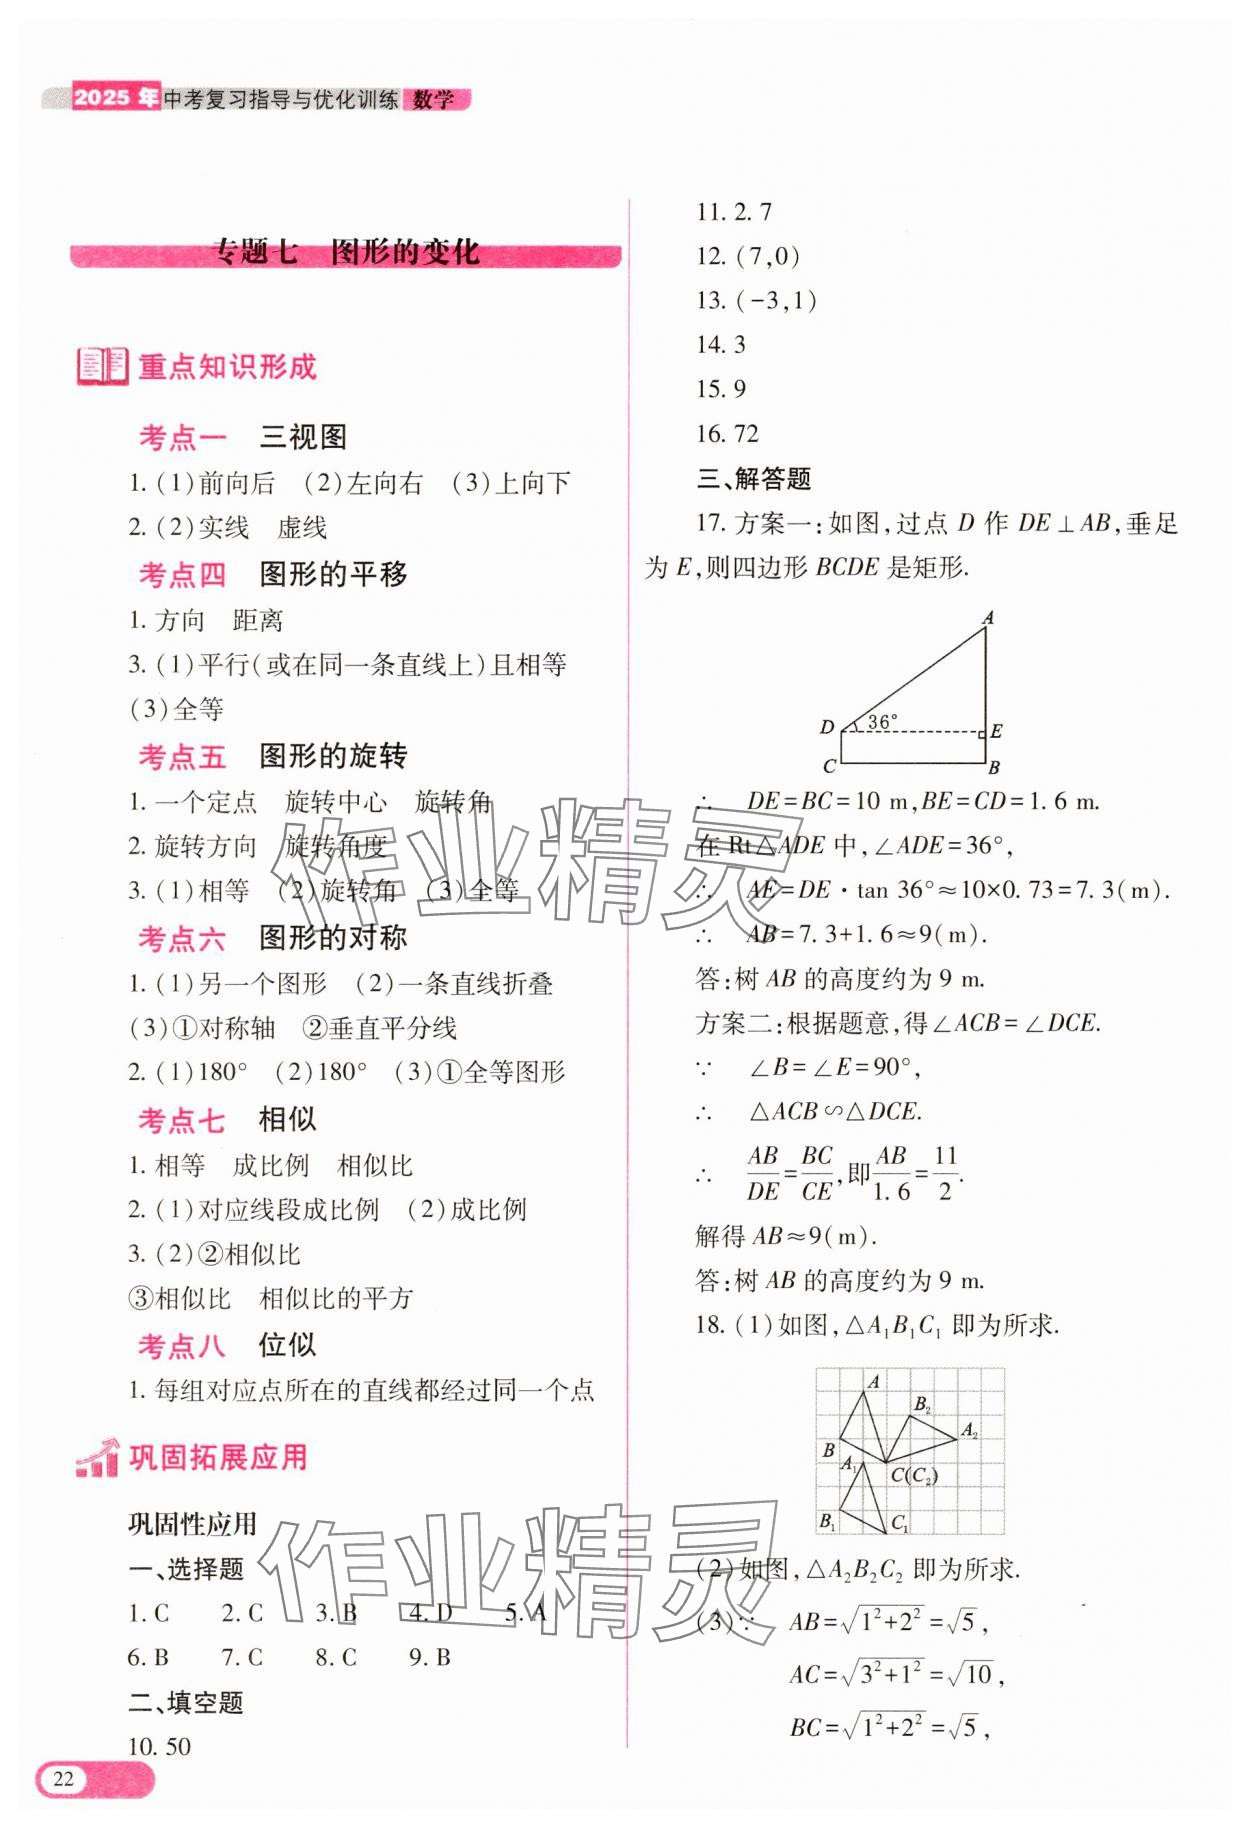 2025年中考复习指导与优化训练 数学
专题七 图形的变化
重点知识形成
考点一 三视图
1. (1)前向后 (2)左向右 (3)上向下
2. (2)实线 虚线
考点四 图形的平移
1. 方向 距离
3. (1)平行(或在同一条直线上)且相等
(3)全等
考点五 图形的旋转
1. 一个定点 旋转中心 旋转角
2. 旋转方向 旋转角度
3. (1)相等 (2)旋转角 (3)全等
考点六 图形的对称
1. (1)另一个图形 (2)一条直线折叠
(3)①对称轴 ②垂直平分线
2. (1)180° (2)180° (3)①全等图形
考点七 相似
1. 相等 成比例 相似比
2. (1)对应线段成比例 (2)成比例
3. (2)②相似比
③相似比 相似比的平方
考点八 位似
1. 每组对应点所在的直线都经过同一个点
巩固拓展应用
巩固性应用
一、选择题
1. C 2. C 3. B 4. D 5. A
6. B 7. C 8. C 9. B
二、填空题
10. 50
11. 2.7
12. (7,0)
13. (-3,1)
14. 3
15. 9
16. 72
三、解答题
17. 方案一:如图,过点 D 作 DE⊥AB,垂足
为 E,则四边形 BCDE 是矩形.
A
D 36° E
C B
∴ DE=BC=10 m,BE=CD=1.6 m.
在 Rt△ADE 中,∠ADE=36°,
∴ AE=DE·tan 36°≈10×0.73=7.3(m).
∴ AB=7.3+1.6≈9(m).
答:树 AB 的高度约为 9 m.
方案二:根据题意,得∠ACB=∠DCE.
∵ ∠B=∠E=90°,
∴ △ACB∽△DCE.
∴ AB/DE=BC/CE,即AB/1.6=11/2.
解得 AB≈9(m).
答:树 AB 的高度约为 9 m.
18. (1)如图,△A₁B₁C₁ 即为所求.
A
B₂
B A₂
A₁ C(C₂)
B₁ C₁
(2)如图,△A₂B₂C₂ 即为所求.
(3)∵ AB=√(1²+2²)=√5,
AC=√(3²+1²)=√10,
BC=√(1²+2²)=√5,
22
作业精灵
作业精灵